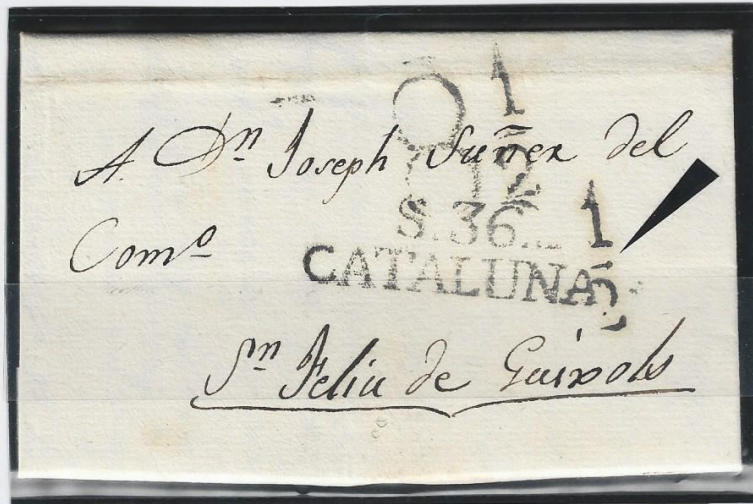 A Dn Joseph Suñer del
Como
S. 36.
CATALUNA
1
1
12
Sn Feliu de Guixols